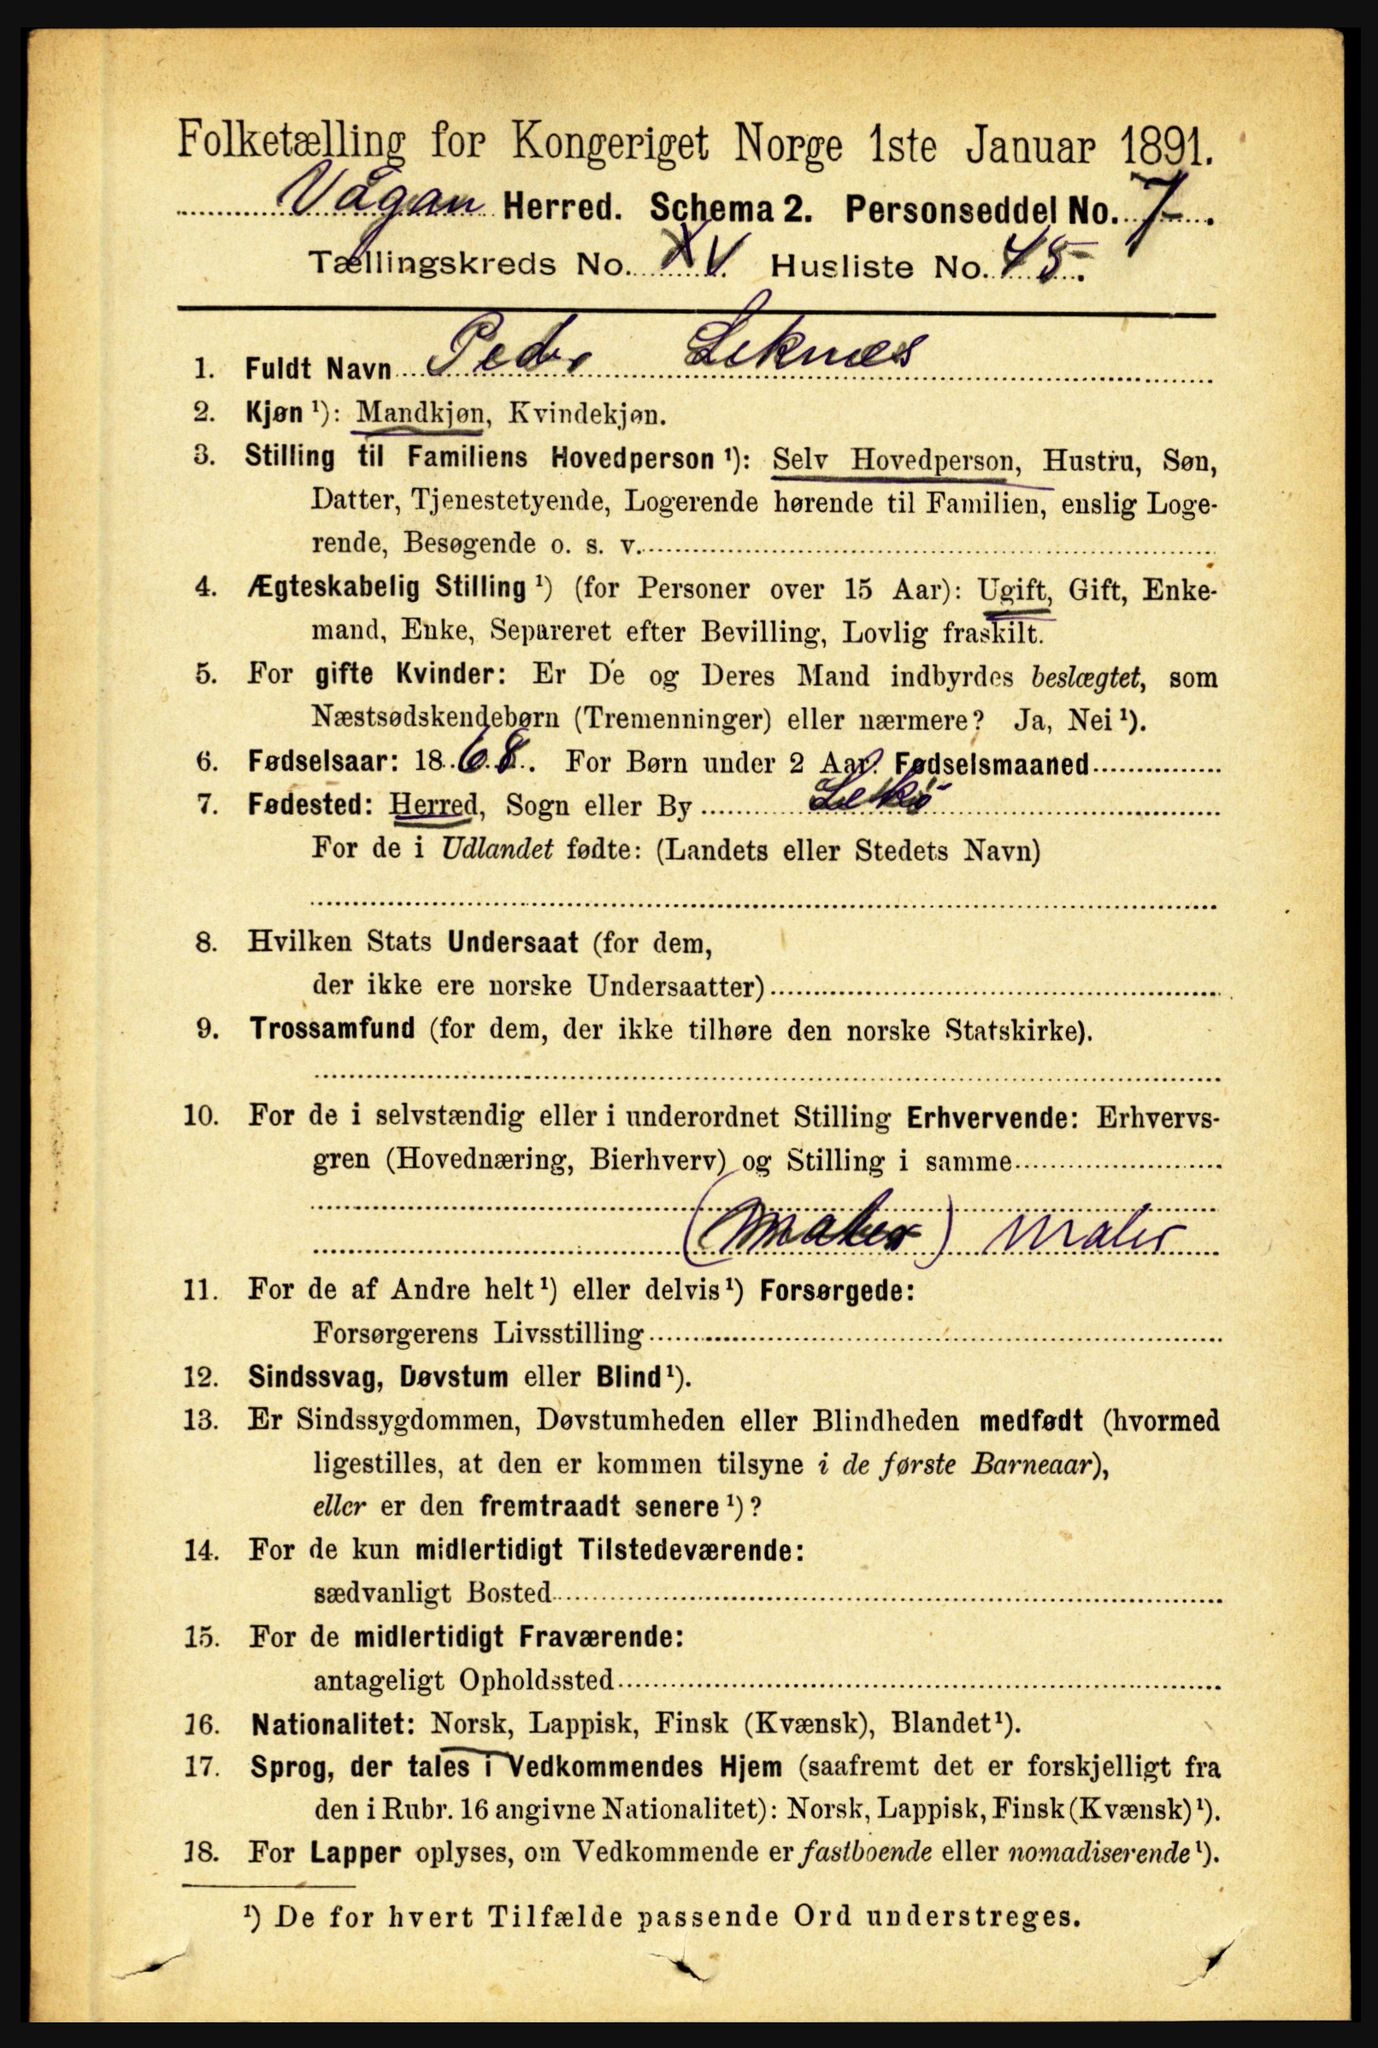 Folketælling for Kongeriget Norge 1ste Januar 1891.
Vågan Herred. Schema 2. Personseddel No. 7.
Tællingskreds No. XV. Husliste No. 45.
1. Fuldt Navn Peder Leknæs
2. Kjøn ¹): Mandkjøn, Kvindekjøn.
3. Stilling til Familiens Hovedperson ¹): Selv Hovedperson, Hustru, Søn,
Datter, Tjenestetyende, Logerende hørende til Familien, enslig Loge-
rende, Besøgende o. s. v.
4. Ægteskabelig Stilling ¹) (for Personer over 15 Aar): Ugift, Gift, Enke-
mand, Enke, Separeret efter Bevilling, Lovlig fraskilt.
5. For gifte Kvinder: Er De og Deres Mand indbyrdes beslægtet, som
Næstsødskendebørn (Tremenninger) eller nærmere? Ja, Nei ¹).
6. Fødselsaar: 1868. For Børn under 2 Aar: Fødselsmaaned
7. Fødested: Herred, Sogn eller By Lekø
For de i Udlandet fødte: (Landets eller Stedets Navn)
8. Hvilken Stats Undersaat (for dem,
der ikke ere norske Undersaatter)
9. Trossamfund (for dem, der ikke tilhøre den norske Statskirke).
10. For de i selvstændig eller i underordnet Stilling Erhvervende: Erhvervs-
gren (Hovednæring, Bierhverv) og Stilling i samme
(Maler) Maler
11. For de af Andre helt ¹) eller delvis ¹) Forsørgede:
Forsørgerens Livsstilling
12. Sindssvag, Døvstum eller Blind ¹).
13. Er Sindssygdommen, Døvstumheden eller Blindheden medfødt (hvormed
ligestilles, at den er kommen tilsyne i de første Barneaar),
eller er den fremtraadt senere ¹)?
14. For de kun midlertidigt Tilstedeværende:
sædvanligt Bosted
15. For de midlertidigt Fraværende:
antageligt Opholdssted
16. Nationalitet: Norsk, Lappisk, Finsk (Kvænsk), Blandet ¹).
17. Sprog, der tales i Vedkommendes Hjem (saafremt det er forskjelligt fra
den i Rubr. 16 angivne Nationalitet): Norsk, Lappisk, Finsk (Kvænsk) ¹).
18. For Lapper oplyses, om Vedkommende er fastboende eller nomadiserende ¹).
¹) De for hvert Tilfælde passende Ord understreges.